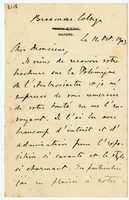 Brasenose College
OXFORD.
Le 12 Oct. 1903
Cher Monsieur,
Je viens de recevoir votre
brochure sur la Polémique
de l'Ambrosiaster et je m'
empresse de vous remercier
de votre bonté en me l'en-
voyant. Je l'ai lu avec
beaucoup d'intérêt et d'
admiration pour l'expo-
sition si savante et le style
si charmant. En particulier
j'ai eu plaisir à noter